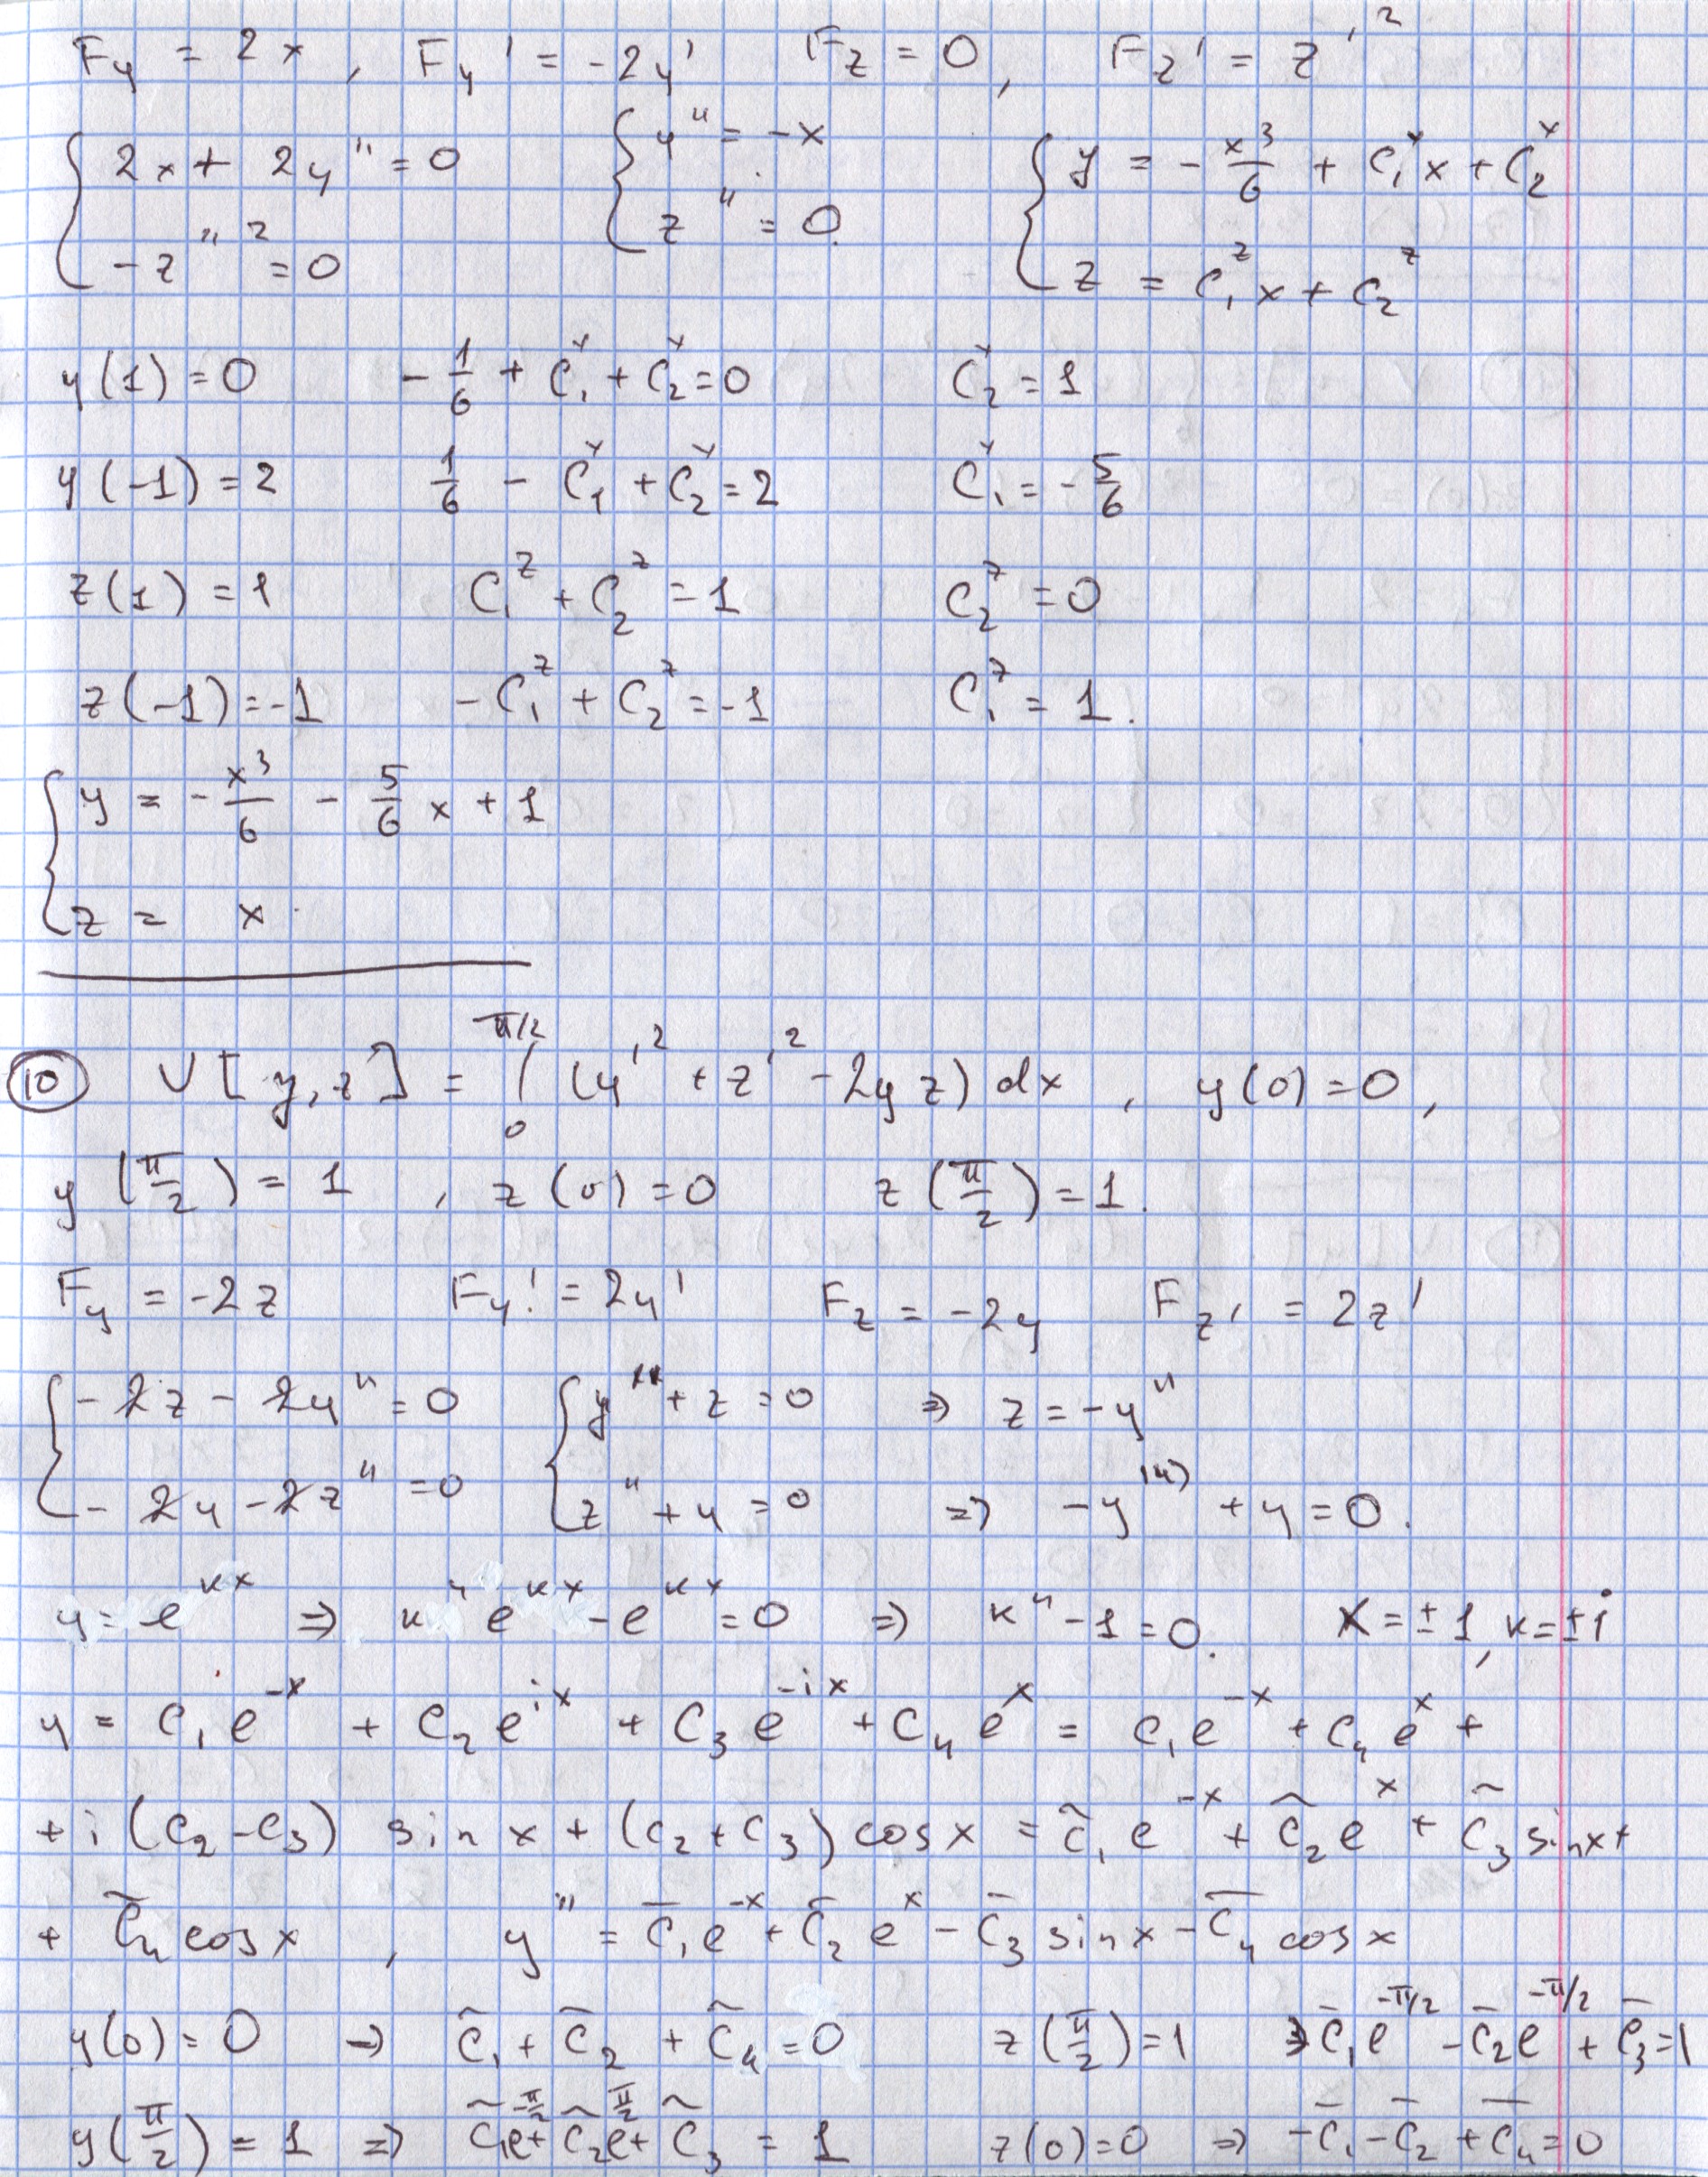 F_y = 2x, F_y' = -2y' F_z = 0, F_z' = z'^2
{ 2x + 2y'' = 0 { y'' = -x { y = -x^3/6 + C_1^y x + C_2^y
{ -z''^2 = 0 { z'' = 0. { z = C_1^z x + C_2^z
y(1) = 0 -1/6 + C_1^y + C_2^y = 0 C_2^y = 1
y(-1) = 2 1/6 - C_1^y + C_2^y = 2 C_1^y = -5/6
z(1) = 1 C_1^z + C_2^z = 1 C_2^z = 0
z(-1) = -1 -C_1^z + C_2^z = -1 C_1^z = 1.
{ y = -x^3/6 - 5/6 x + 1
{ z = x.
⑩ V[y,z] = ∫_0^{π/2} (y'^2 + z'^2 - 2yz) dx, y(0) = 0,
y(π/2) = 1, z(0) = 0 z(π/2) = 1.
F_y = -2z F_y' = 2y' F_z = -2y F_z' = 2z'
{ -2z - 2y'' = 0 { y'' + z = 0 ⇒ z = -y''
{ -2y - 2z'' = 0 { z'' + y = 0 ⇒ -y^(4) + y = 0.
y = e^{kx} ⇒ k^4 e^{kx} - e^{kx} = 0 ⇒ k^4 - 1 = 0. k = ±1, k = ±i
y = C_1 e^{-x} + C_2 e^{ix} + C_3 e^{-ix} + C_4 e^x = C_1 e^{-x} + C_4 e^x +
+ i(C_2 - C_3) sin x + (C_2 + C_3) cos x = C̃_1 e^{-x} + C̃_2 e^x + C̃_3 sin x +
+ C̃_4 cos x, y'' = C̄_1 e^{-x} + C̄_2 e^x - C̄_3 sin x - C̄_4 cos x
y(0) = 0 → C̃_1 + C̃_2 + C̃_4 = 0 z(π/2) = 1 ⇒ -C̄_1 e^{-π/2} - C̄_2 e^{-π/2} + C̄_3 = 1
y(π/2) = 1 ⇒ C̃_1 e^{-π/2} + C̃_2 e^{π/2} + C̃_3 = 1 z(0) = 0 ⇒ -C̄_1 - C̄_2 + C̄_4 = 0